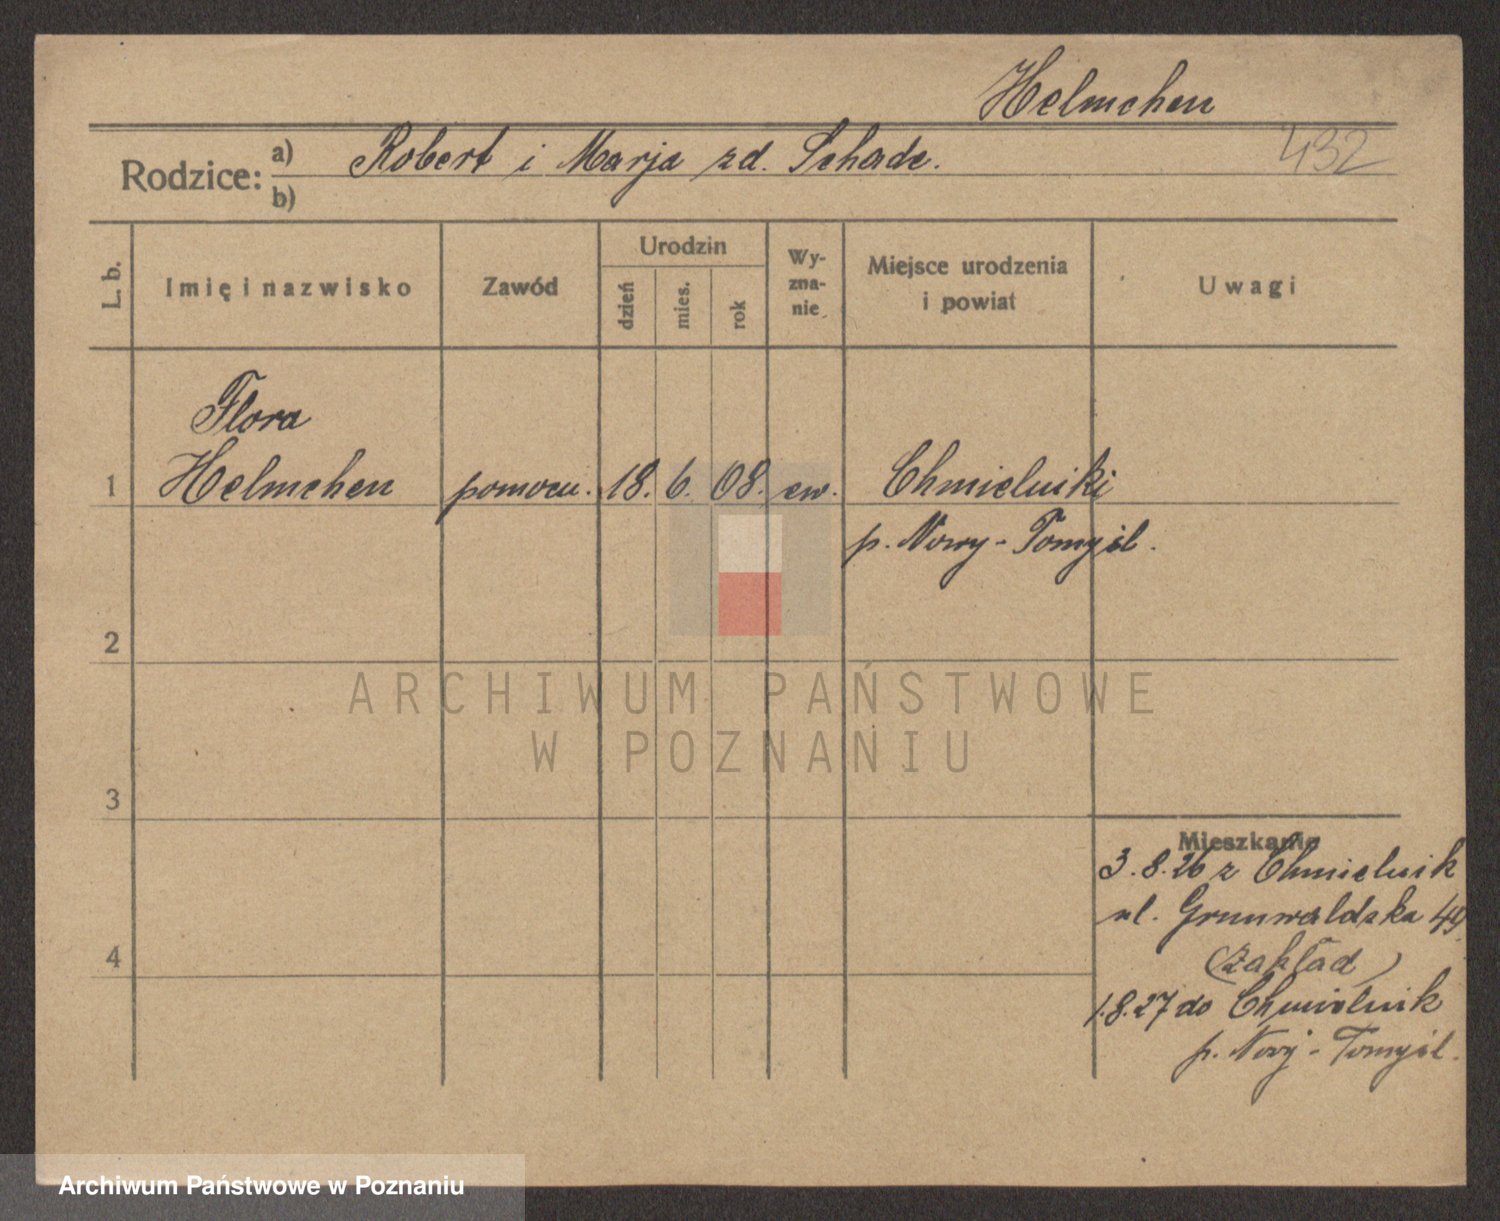 Helmchen
Rodzice: a) Robert i Marja zd. Schade. 432
b)
L. b. Imię i nazwisko Zawód Urodzin dzień mies. rok Wy-zna-nie Miejsce urodzenia i powiat Uwagi
Flora
1 Helmchen pomocn. 18. 6. 08. ew. Chmielniki
p. Nowy-Tomyśl.
2
ARCHIWUM PAŃSTWOWE
W POZNANIU
3
Mieszkanie
3.8.26 z Chmielnik
ul. Grunwaldska 49
4 (zakład)
1.8.27 do Chmielnik
p. Nowy-Tomyśl.
Archiwum Państwowe w Poznaniu